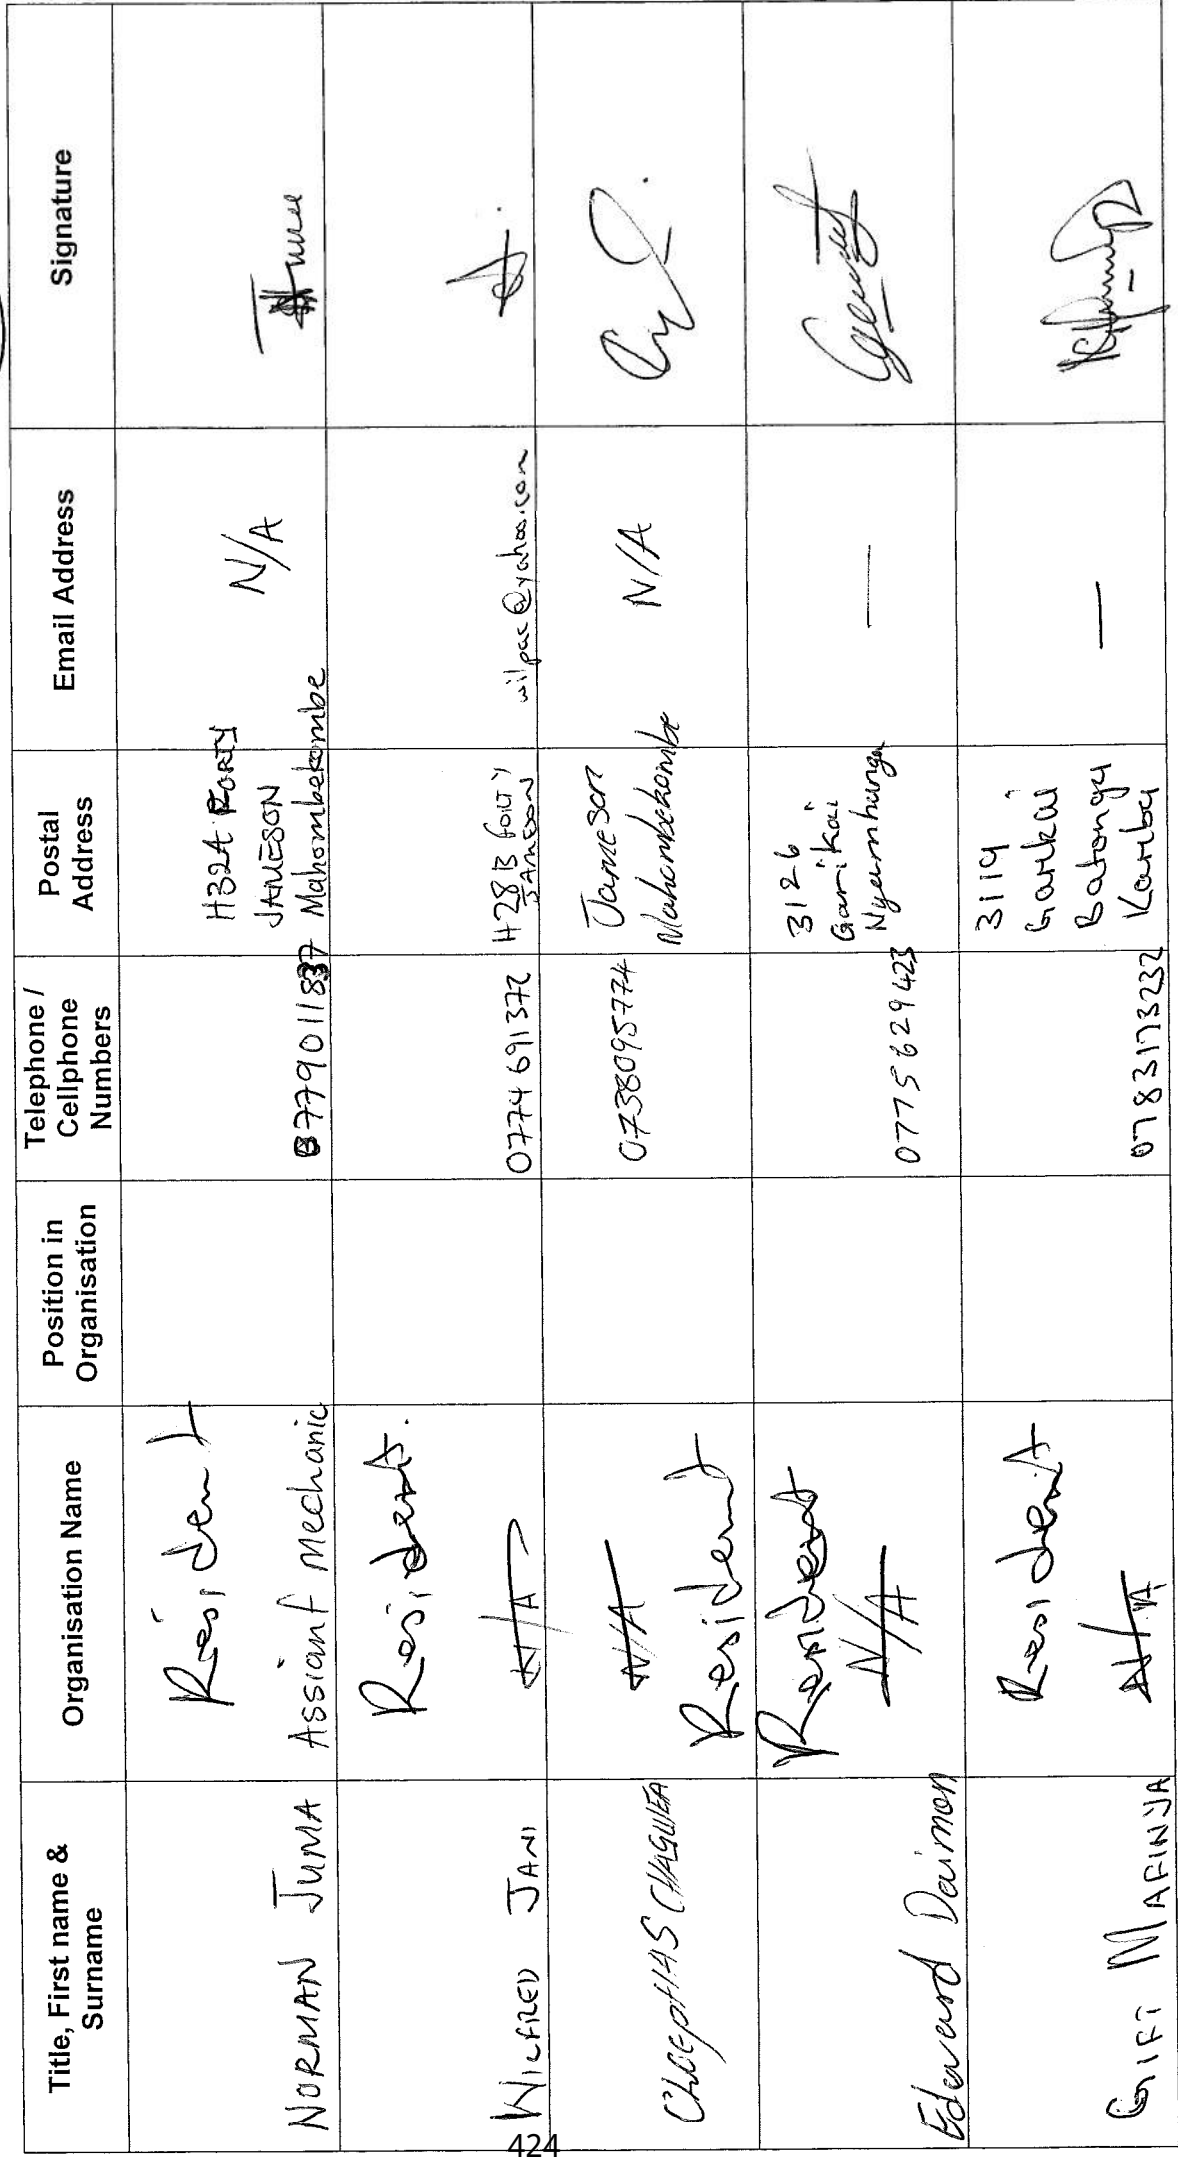 Title, First name &
Surname
Organisation Name
Position in
Organisation
Telephone /
Cellphone
Numbers
Postal
Address
Email Address
Signature
NORMAN JUMA
Resident
Assianf Mechanic
0779011837
H32A FORTY
JAMESON
Mahombekombe
N/A
WILFRED JANI
Resident.
N/A
0774691372
H28B FORTY
JAMESON
wilpac@yahoo.com
N/A
Resident
0738095774
Jameson
Mahombekombe
N/A
Edward Daimon
Resident
N/A
0775629423
3126
Garikai
Nyamhunga
—
GIFT MAFINYA
Resident
N/A
0783173232
3119
Garikai
Batonga
Kariba
—
424